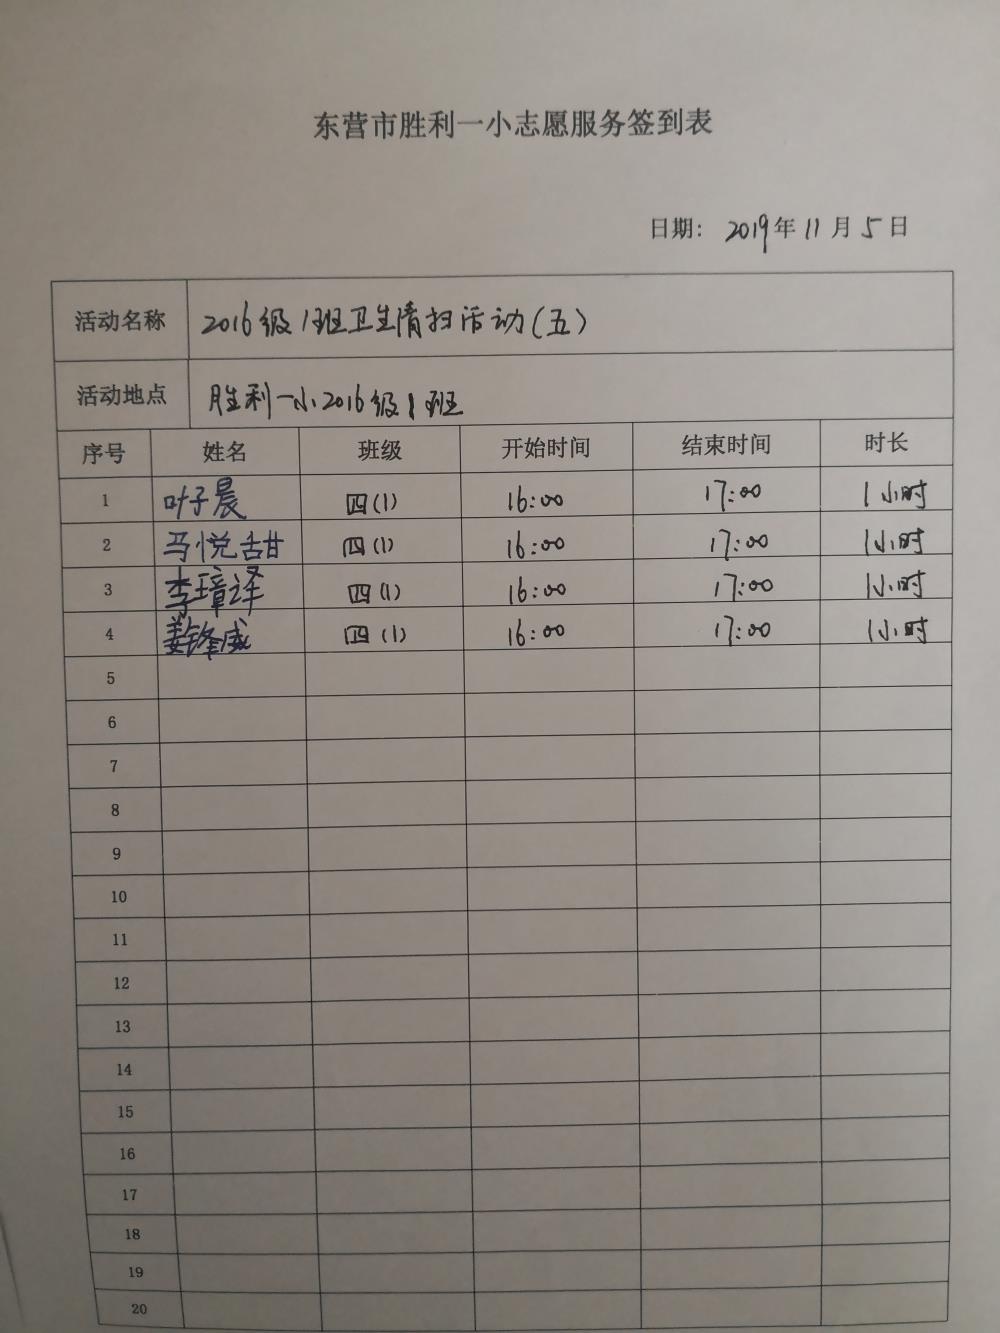 东营市胜利一小志愿服务签到表
日期: 2019年11月5日
活动名称 2016级1班卫生清扫活动(五)
活动地点 胜利一小2016级1班
序号 姓名 班级 开始时间 结束时间 时长
1 叶子晨 四(1) 16:00 17:00 1小时
2 马悦甜 四(1) 16:00 17:00 1小时
3 李璋译 四(1) 16:00 17:00 1小时
4 姜锋威 四(1) 16:00 17:00 1小时
5
6
7
8
9
10
11
12
13
14
15
16
17
18
19
20